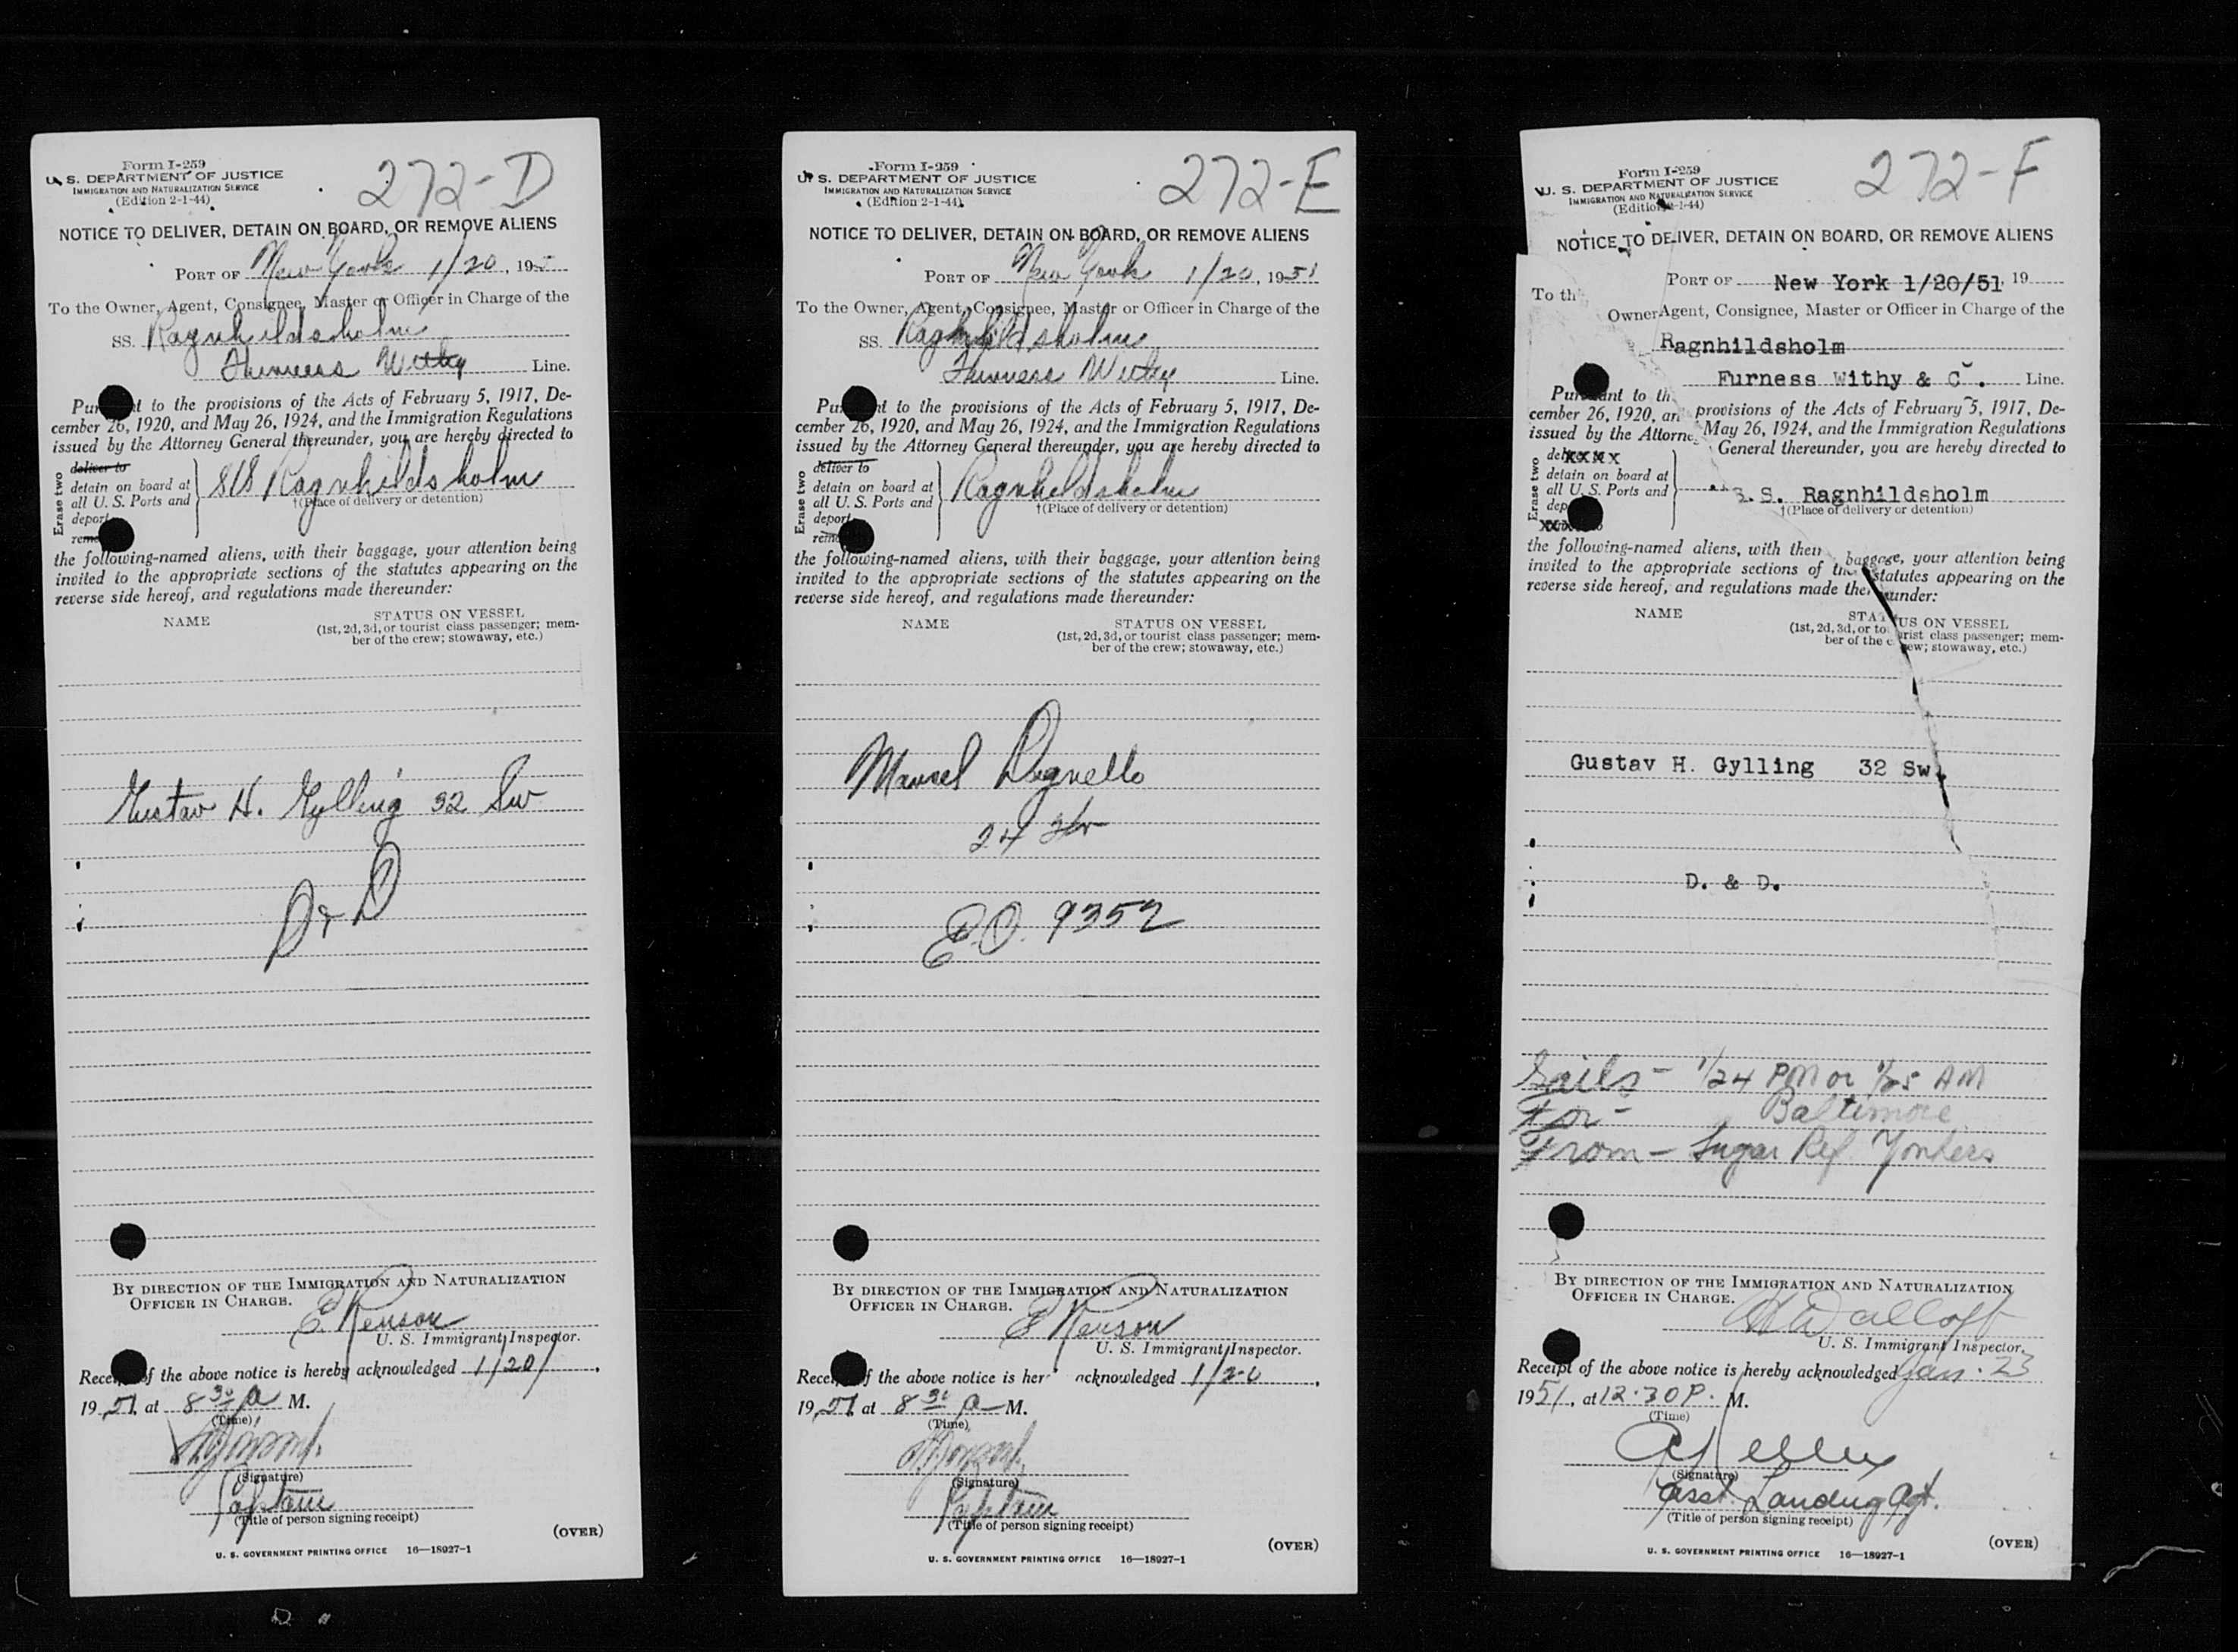 Form I-259
U. S. DEPARTMENT OF JUSTICE
IMMIGRATION AND NATURALIZATION SERVICE
(Edition 2-1-44)
272-D
NOTICE TO DELIVER, DETAIN ON BOARD, OR REMOVE ALIENS
PORT OF New York 1/20, 195
To the Owner, Agent, Consignee, Master or Officer in Charge of the
SS. Ragnhildsholm
Furness Withy Line.
Pursuant to the provisions of the Acts of February 5, 1917, De-
cember 26, 1920, and May 26, 1924, and the Immigration Regulations
issued by the Attorney General thereunder, you are hereby directed to
Erase two
deliver to
detain on board at
all U. S. Ports and
deport
remo
S/S Ragnhildsholm
†(Place of delivery or detention)
the following-named aliens, with their baggage, your attention being
invited to the appropriate sections of the statutes appearing on the
reverse side hereof, and regulations made thereunder:
NAME
STATUS ON VESSEL
(1st, 2d, 3d, or tourist class passenger; mem-
ber of the crew; stowaway, etc.)
Gustav H. Gylling 32 Sw
D & D
BY DIRECTION OF THE IMMIGRATION AND NATURALIZATION
OFFICER IN CHARGE.
U. S. Immigrant Inspector.
Receipt of the above notice is hereby acknowledged 1/20/
1951, at 8 30 a M.
(Time)
(Signature)
Captain
(Title of person signing receipt)
(OVER)
U. S. GOVERNMENT PRINTING OFFICE 16—18927-1
Form I-259
U. S. DEPARTMENT OF JUSTICE
IMMIGRATION AND NATURALIZATION SERVICE
(Edition 2-1-44)
272-E
NOTICE TO DELIVER, DETAIN ON BOARD, OR REMOVE ALIENS
PORT OF New York 1/20, 1951
To the Owner, Agent, Consignee, Master or Officer in Charge of the
SS. Ragnhildsholm
Furness Withy Line.
Pursuant to the provisions of the Acts of February 5, 1917, De-
cember 26, 1920, and May 26, 1924, and the Immigration Regulations
issued by the Attorney General thereunder, you are hereby directed to
Erase two
deliver to
detain on board at
all U. S. Ports and
deport
remo
Ragnhildsholm
†(Place of delivery or detention)
the following-named aliens, with their baggage, your attention being
invited to the appropriate sections of the statutes appearing on the
reverse side hereof, and regulations made thereunder:
NAME
STATUS ON VESSEL
(1st, 2d, 3d, or tourist class passenger; mem-
ber of the crew; stowaway, etc.)
24
E.O. 9352
BY DIRECTION OF THE IMMIGRATION AND NATURALIZATION
OFFICER IN CHARGE.
U. S. Immigrant Inspector.
Receipt of the above notice is her acknowledged 1/20
1951, at 8 30 a M.
(Time)
(Signature)
Captain
(Title of person signing receipt)
(OVER)
U. S. GOVERNMENT PRINTING OFFICE 16—18927-1
Form I-259
U. S. DEPARTMENT OF JUSTICE
IMMIGRATION AND NATURALIZATION SERVICE
(Edition 2-1-44)
272-F
NOTICE TO DELIVER, DETAIN ON BOARD, OR REMOVE ALIENS
PORT OF New York 1/20/51, 19
To th
Owner Agent, Consignee, Master or Officer in Charge of the
Ragnhildsholm
Furness Withy & C . Line.
Pursuant to th
cember 26, 1920, an provisions of the Acts of February 5, 1917, De-
issued by the Attorne May 26, 1924, and the Immigration Regulations
General thereunder, you are hereby directed to
Erase two
delxxxx
detain on board at
all U. S. Ports and
dep
S.S. Ragnhildsholm
†(Place of delivery or detention)
the following-named aliens, with their baggage, your attention being
invited to the appropriate sections of the statutes appearing on the
reverse side hereof, and regulations made thereunder:
NAME
STATUS ON VESSEL
(1st, 2d, 3d, or tourist class passenger; mem-
ber of the crew; stowaway, etc.)
Gustav H. Gylling 32 Sw.
D. & D.
Sails - 1/24 PM or 1/25 AM
For - Baltimore
From - Sugar Ref. Yonkers
BY DIRECTION OF THE IMMIGRATION AND NATURALIZATION
OFFICER IN CHARGE.
U. S. Immigrant Inspector.
Receipt of the above notice is hereby acknowledged Jan. 23
1951, at 12.30 P. M.
(Time)
(Signature)
Asst. Landing Agt.
(Title of person signing receipt)
(OVER)
U. S. GOVERNMENT PRINTING OFFICE 16—18927-1